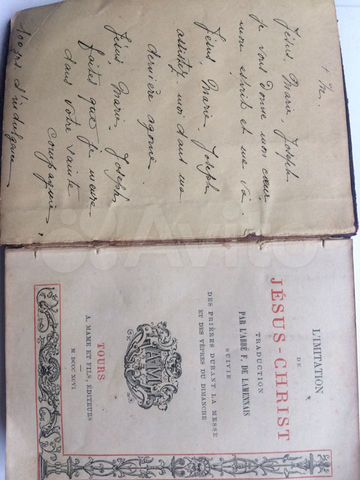 † M.
Jésus, Marie, Joseph
je vous donne mon cœur
mon esprit et ma vie.
Jésus Marie Joseph
assistez moi dans ma
dernière agonie
Jésus, Marie, Joseph,
faites que je meure
dans votre sainte
compagnie.
100 jrs d'indulgence
L'IMITATION
DE
JÉSUS-CHRIST
TRADUCTION
PAR L'ABBÉ F. DE LAMENNAIS
SUIVIE
DES PRIÈRES DURANT LA MESSE
ET DES VÊPRES DU DIMANCHE
TOURS
A. MAME ET FILS, ÉDITEURS
M DCCC XCVI
Avito